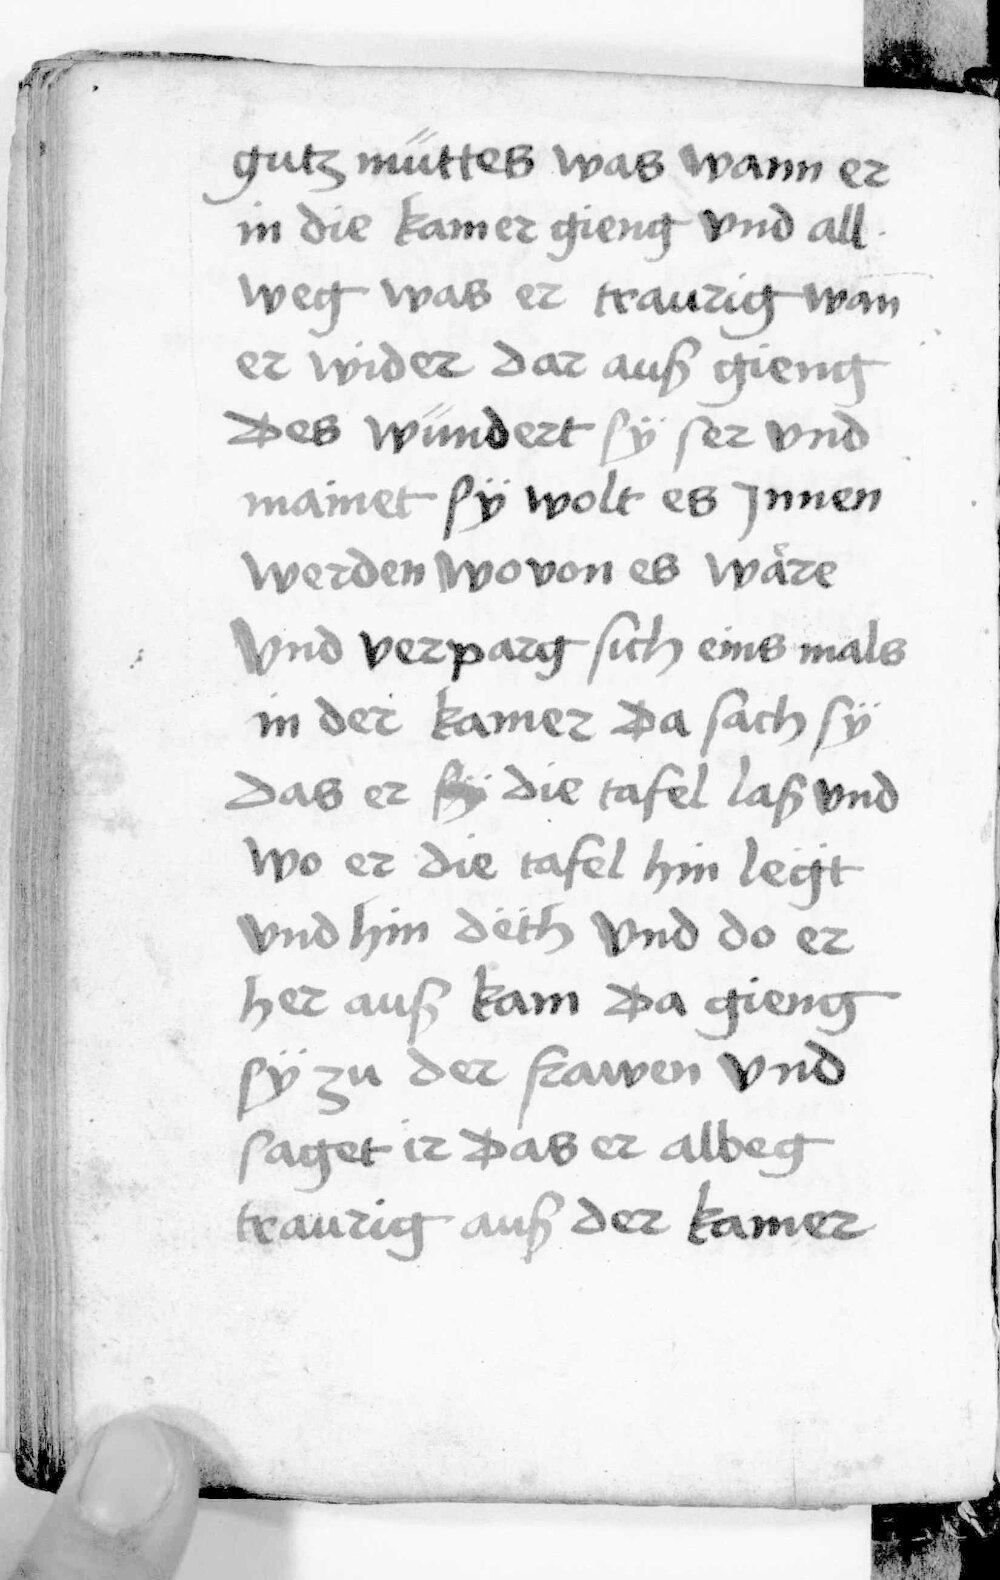 gutz müttes was wann er
in die kamer gieng vnd all
weg was er traurig wan̄
er wider dar auß gieng
Des wündert sÿ ser vnd
mainet sÿ wolt es Jnnen
werden wo von es wåre
Vnd verparg sich eins mals
in der kamer Da sach sÿ
das er sÿ die tafel laß vnd
wo er die tafel hin legt
vnd hin dëth vnd do er
her auß kam Da gieng
sÿ zu der frawen vnd
saget ir Das er albeg
traurig auß der kamer